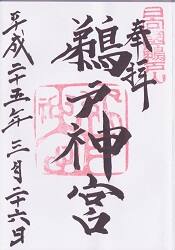 奉拝
鵜戸神宮
平成二十五年三月二十六日